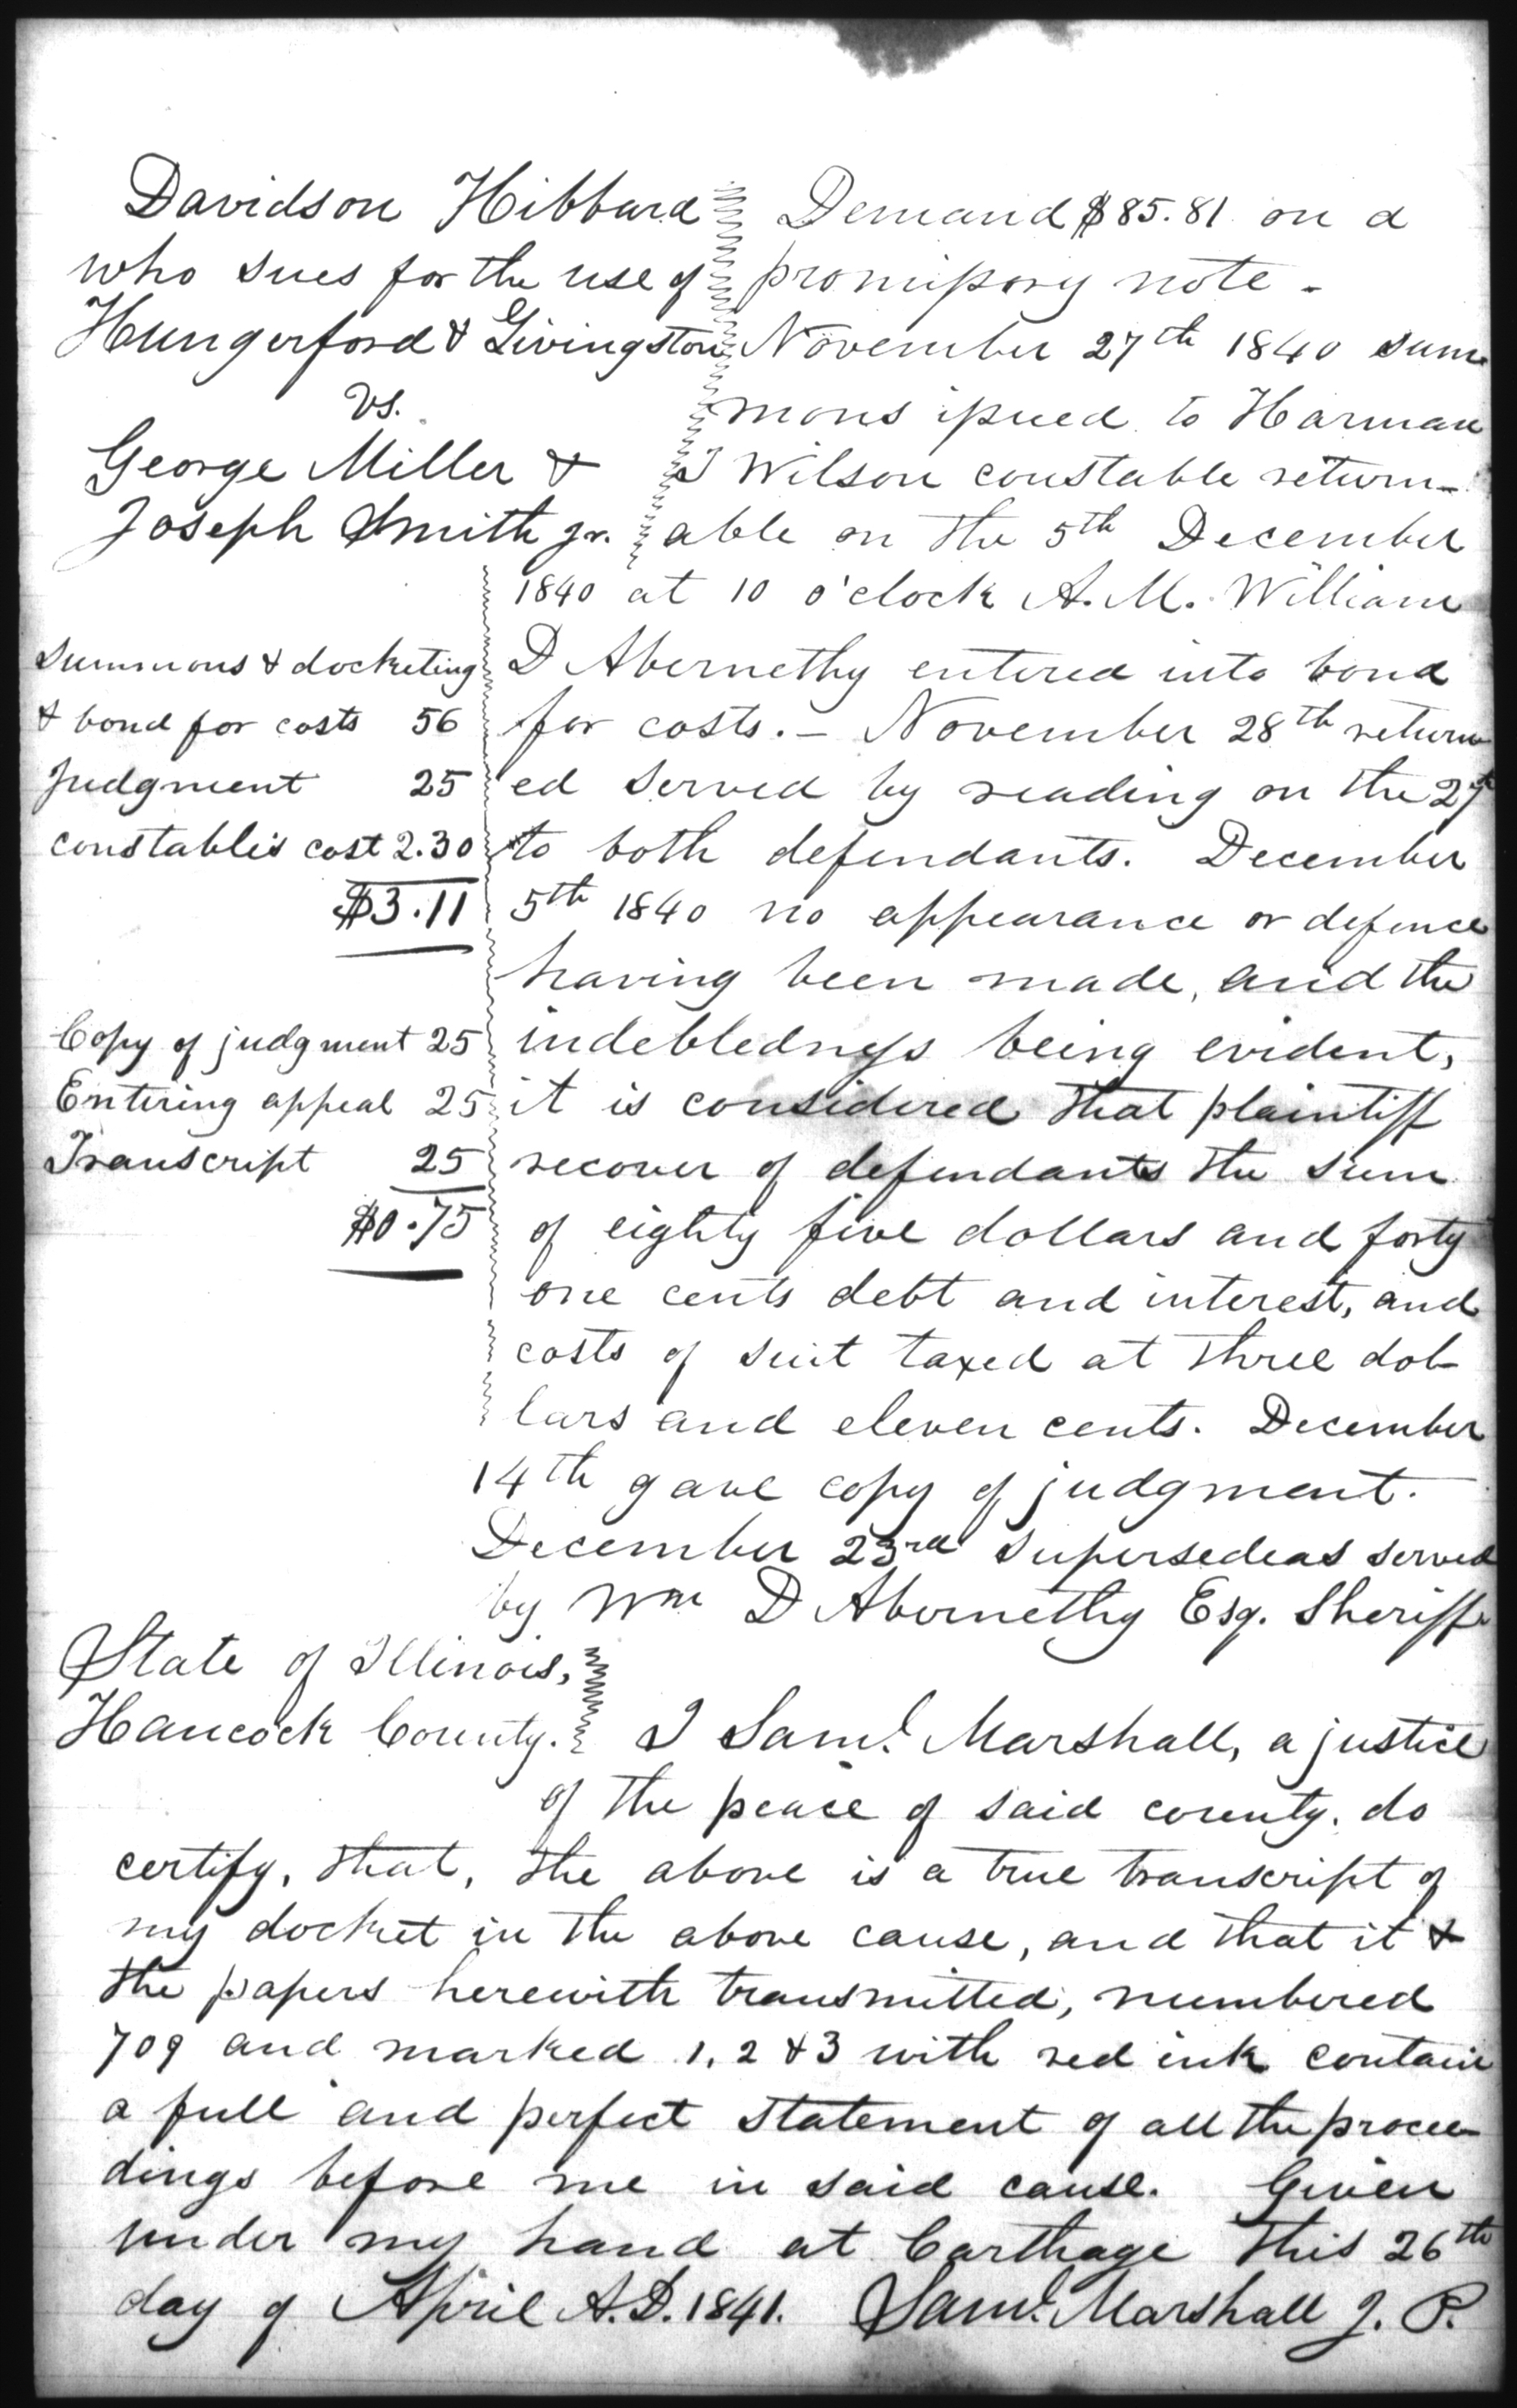 Davidson Hibbard
who sues for the use of
Hungerford & Livingston
vs.
George Miller &
Joseph Smith jr.
Demand $85.81 on a
promissory note -
November 27th 1840 sum
mons issued to Harman
T Wilson constable return-
able on the 5th December
1840 at 10 o'clock A.M. William
D Abernethy entered into bond
for costs. - November 28th return
ed served by reading on the 27th
to both defendants. December
5th 1840 no appearance or defence
having been made, and the
indebledness being evident,
it is considered that plaintiff
recover of defendants the sum
of eighty five dollars and forty
one cents debt and interest, and
costs of suit taxed at three dol-
lars and eleven cents. December
14th gave copy of judgment.
December 23rd supersedeas served
by Wm D Abernethy Esq. Sheriff
summons & docketing
& bond for costs 56
Judgment 25
constable's cost 2.30
$3.11
Copy of judgment 25
Entering appeal 25
Transcript 25
$0.75
State of Illinois,
Hancock County.
I Saml. Marshall, a justice
of the peace of said county, do
certify, that, the above is a true transcript of
my docket in the above cause, and that it &
the papers herewith transmitted, numbered
709 and marked 1, 2 & 3 with red ink contain
a full and perfect statement of all the procee-
dings before me in said cause. Given
under my hand at Carthage this 26th
day of April A.D. 1841. Saml. Marshall J. P.